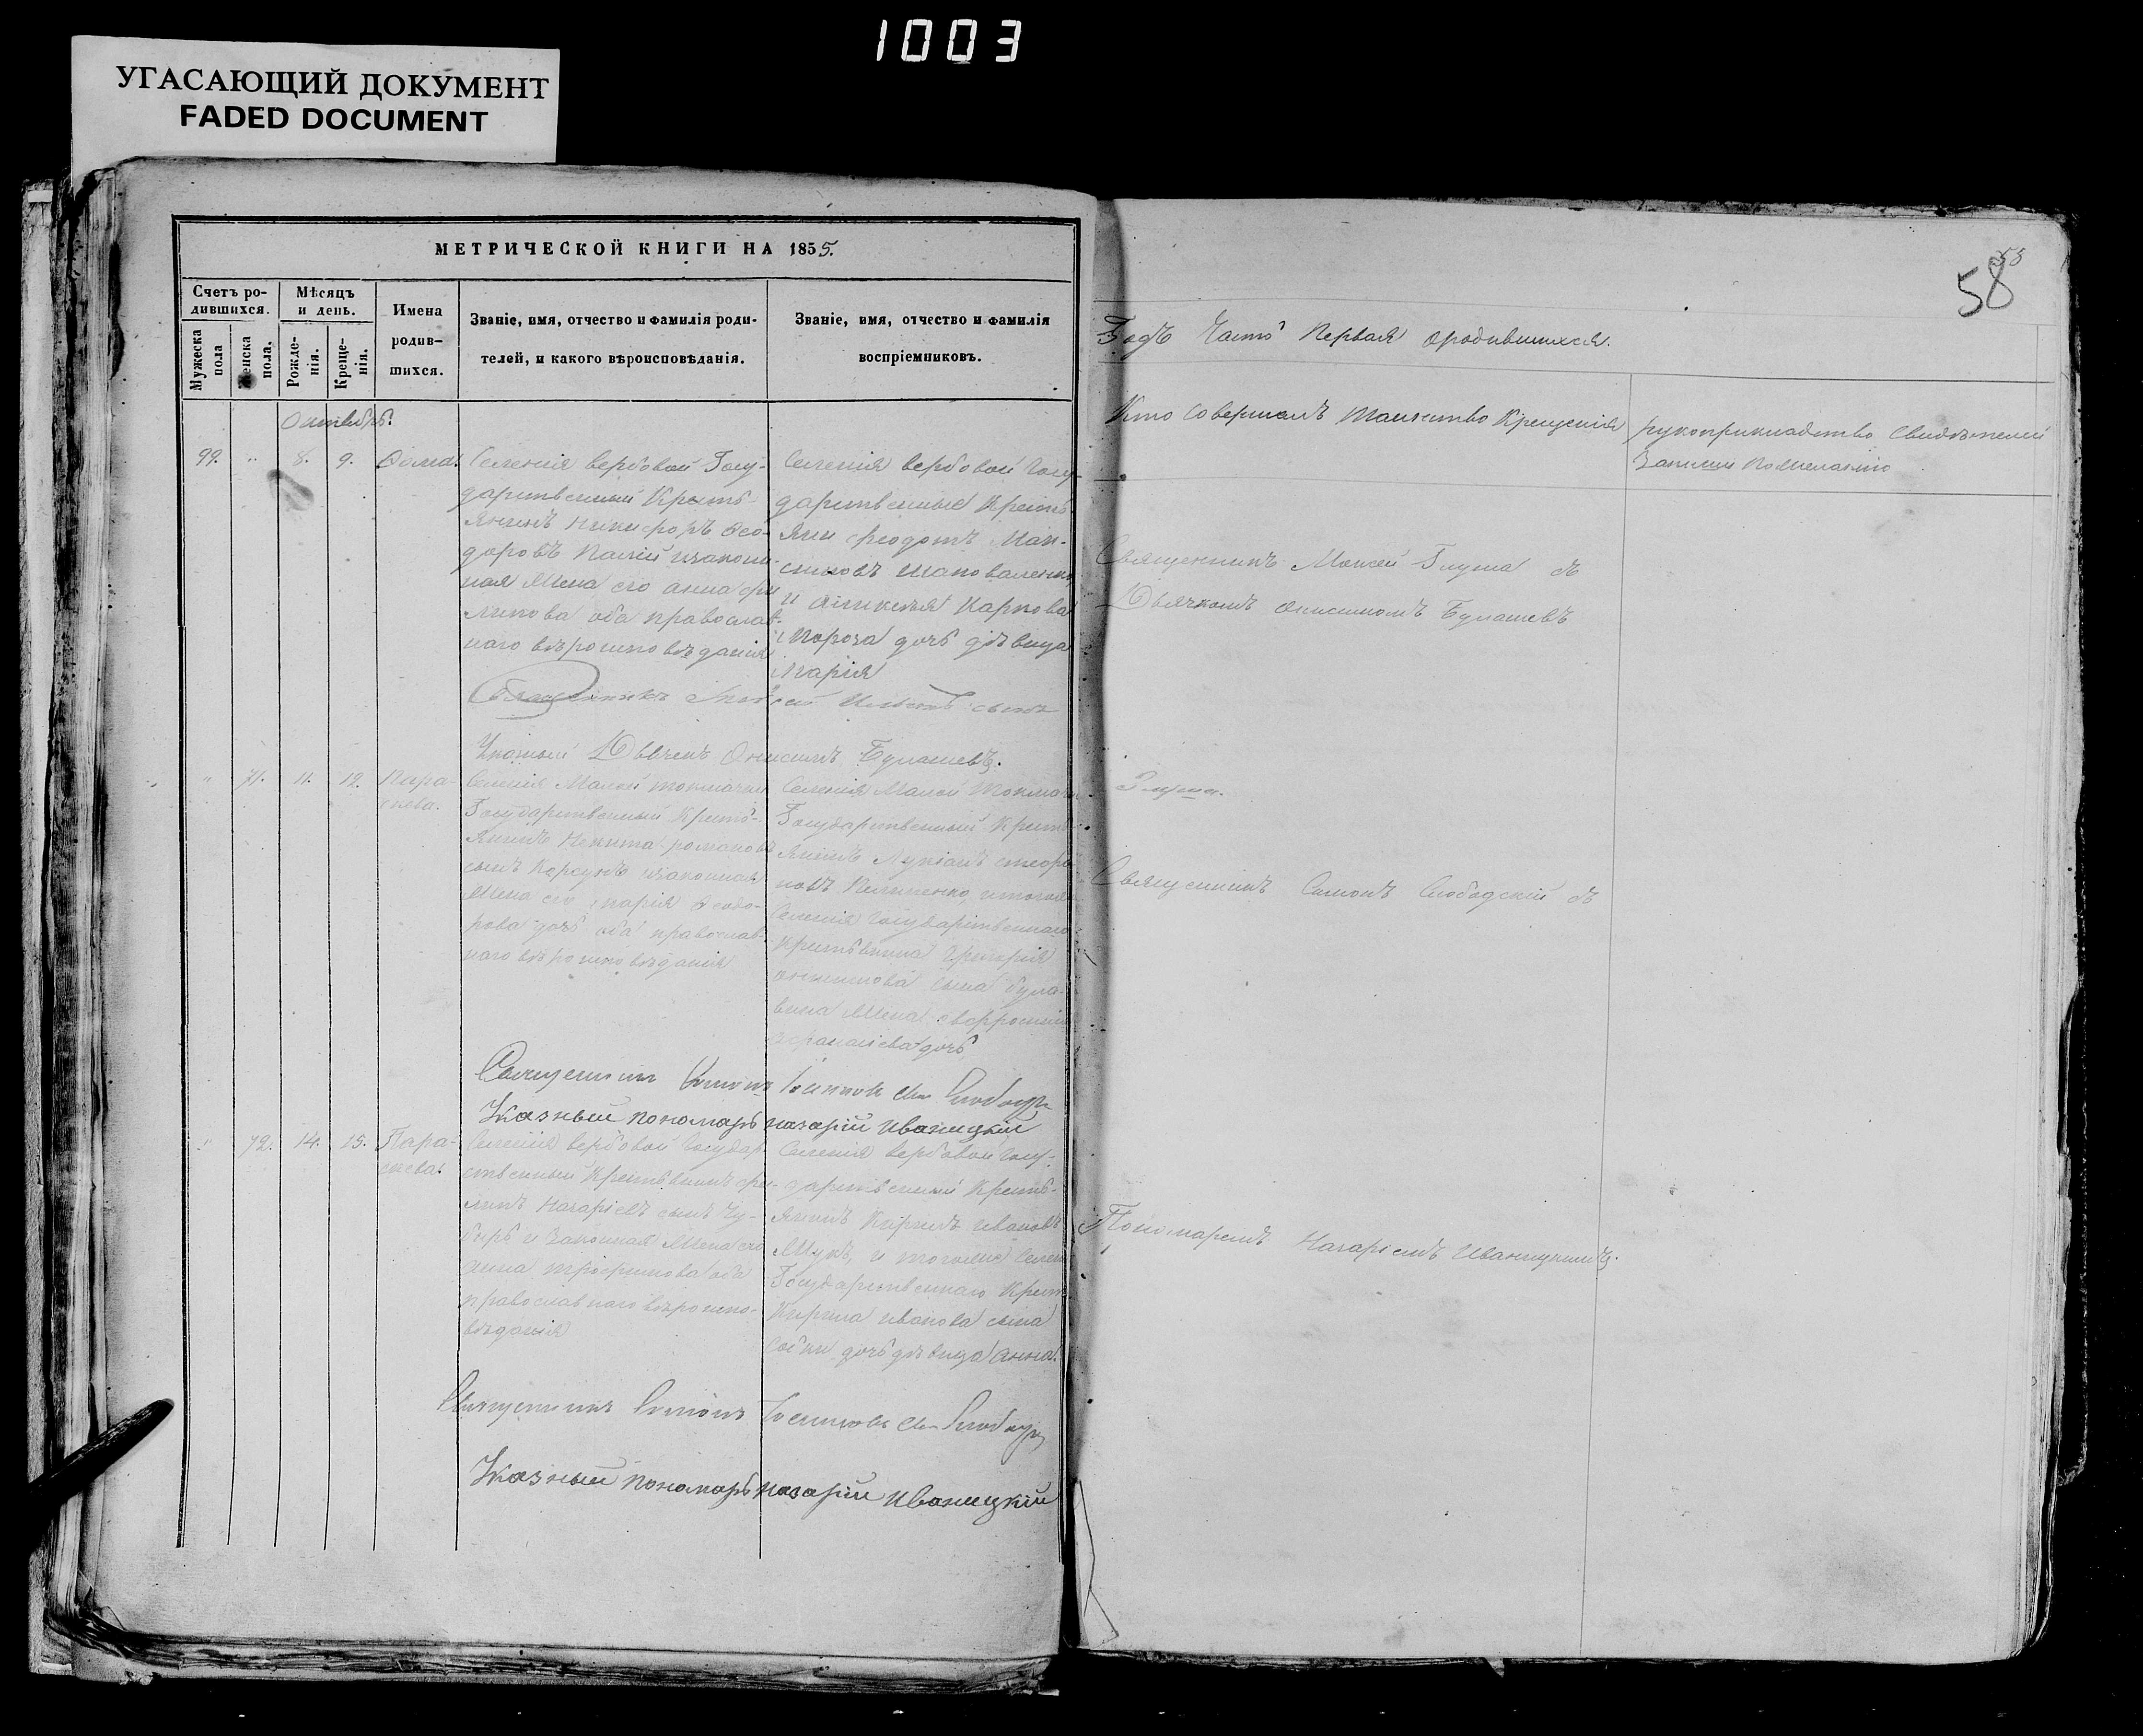 1003
УГАСАЮЩИЙ ДОКУМЕНТ
FADED DOCUMENT
МЕТРИЧЕСКОЙ КНИГИ НА 1855.
Счетъ ро-
дившихся.
Мужеска
пола
Женска
пола.
Мѣсяцъ
и день.
Рожде-
нія.
Креще-
нія.
Имена
родив-
шихся.
Званіе, имя, отчество и фамилія роди-
телей, и какого вѣроисповѣданія.
Званіе, имя, отчество и фамилія
воспріемниковъ.
Октябрь.
99. " 8. 9. Фома.
Селенія вербовой Госу-
дарственный Кресть-
янинъ Никифоръ Фео-
доровъ Палій изакон-
ная Жена его анна фи
липова оба православ-
наго вѣроисповѣданія
Селенія вербовой Госу-
дарственные Кресть
яни феодотъ Мак-
симовъ Шаповаленко
и Карпова
Мороза дочь дѣвица
Марія
Священникъ Моѵсей сынъ
Указный Дьячекъ Онисимъ Булашевъ.
" 71. 11. 12. Пара-
скева.
Селенія Малой Токмачки
Государственный Кресть-
янинъ Никита романовъ
сынъ Корсунъ изаконная
Жена его Марія Феодо-
рова дочь оба православ-
наго вѣроисповѣданія
Селенія Малой Токмачки
Государственный Кресть-
янинъ Лукіанъ
новъ
Селенія Государственнаго
крестьянина Григорія
сына Була-
вина Жена евфросинія
афанасіева дочь
Священникъ Симонъ
Указный пономарь назарій иваницкій
" 72. 14. 15. Пара-
скева.
Селенія вербовой Государ-
ственный Крестьянинъ фи-
липъ Назаріевъ сынъ Чу-
бырь и Законная Жена его
анна трофимова оба
православнаго вѣроиспо-
вѣданія
Селенія вербовой Госу-
дарственный Кресть-
янинъ Кирилъ ивановъ
Жукъ, и тогоже Селен
Государственнаго Крест
Кирила иванова сына
дочь дѣвица анна.
Священникъ Симонъ
Указный пономарь назарій иваницкій
58
58
Годъ Часть Первая ородившихся.
Кто Совершалъ таинство Крещенія
рукоприкладство Свидѣтелей
Записи по Желанію
Священникъ Моисей Глуша съ
Дьячкомъ Онисимомъ Булашевъ
Глуша.
Священникъ Симонъ Слободскій съ
Пономаремъ Назаріемъ Иваницкимъ.